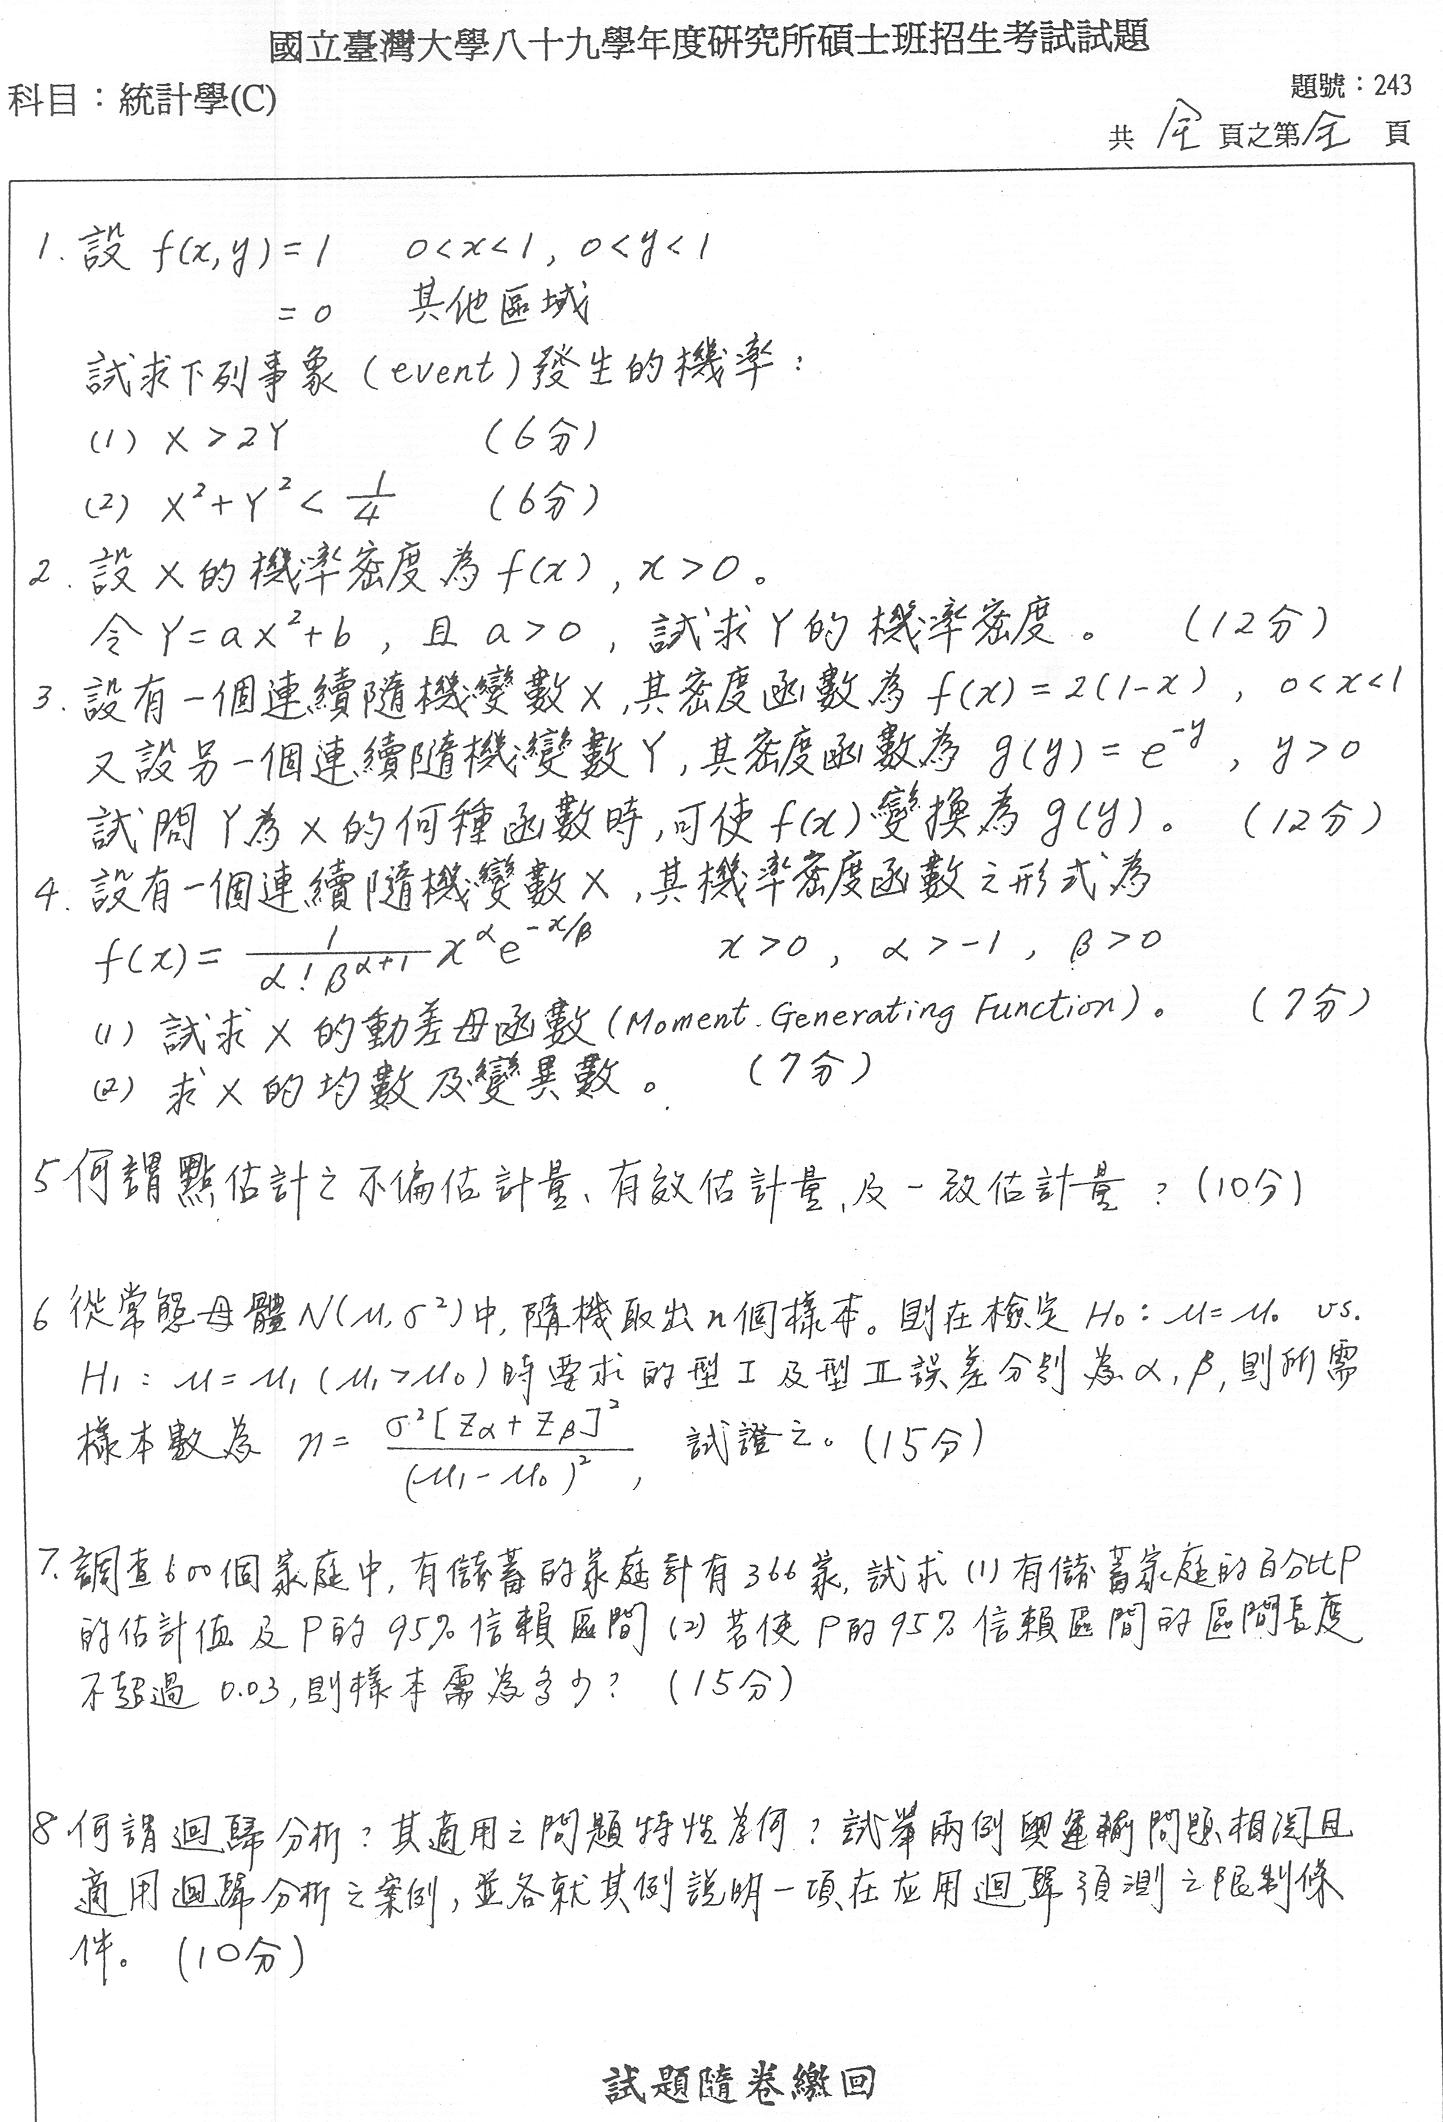 國立臺灣大學八十九學年度研究所碩士班招生考試試題
科目：統計學(C)
題號：243
共 全 頁之第 全 頁
1. 設 f(x,y)=1 0<x<1, 0<y<1
=0 其他區域
試求下列事象(event)發生的機率：
(1) X>2Y (6分)
(2) X²+Y²<1/4 (6分)
2. 設X的機率密度為f(x), x>0。
令Y=aX²+b, 且 a>0, 試求Y的機率密度。 (12分)
3. 設有一個連續隨機變數X,其密度函數為 f(x)=2(1-x), 0<x<1
又設另一個連續隨機變數Y,其密度函數為 g(y)=e^{-y}, y>0
試問Y為X的何種函數時,可使f(x)變換為g(y)。 (12分)
4. 設有一個連續隨機變數X,其機率密度函數之形式為
f(x)=\frac{1}{α!β^{α+1}}x^{α}e^{-x/β} x>0, α>-1, β>0
(1) 試求X的動差母函數(Moment Generating Function)。 (7分)
(2) 求X的均數及變異數。 (7分)
5 何謂點估計之不偏估計量、有效估計量、及一致估計量？(10分)
6 從常態母體N(μ,σ²)中,隨機取出n個樣本。則在檢定 H₀：μ=μ₀ vs.
H₁：μ=μ₁ (μ₁>μ₀)時要求的型I及型II誤差分別為α,β,則所需
樣本數為 n=\frac{σ²[Z_α+Z_β]²}{(μ₁-μ₀)²}, 試證之。(15分)
7. 調查600個家庭中,有儲蓄的家庭計有366家,試求 (1)有儲蓄家庭的百分比P
的估計值及P的95%信賴區間 (2)若使P的95%信賴區間的區間長度
不超過 0.03,則樣本需為多少？ (15分)
8 何謂迴歸分析？其適用之問題特性為何？試舉兩例與運輸問題相關且
適用迴歸分析之案例,並各就其例說明一項在应用迴歸預測之限制條
件。 (10分)
試題隨卷繳回